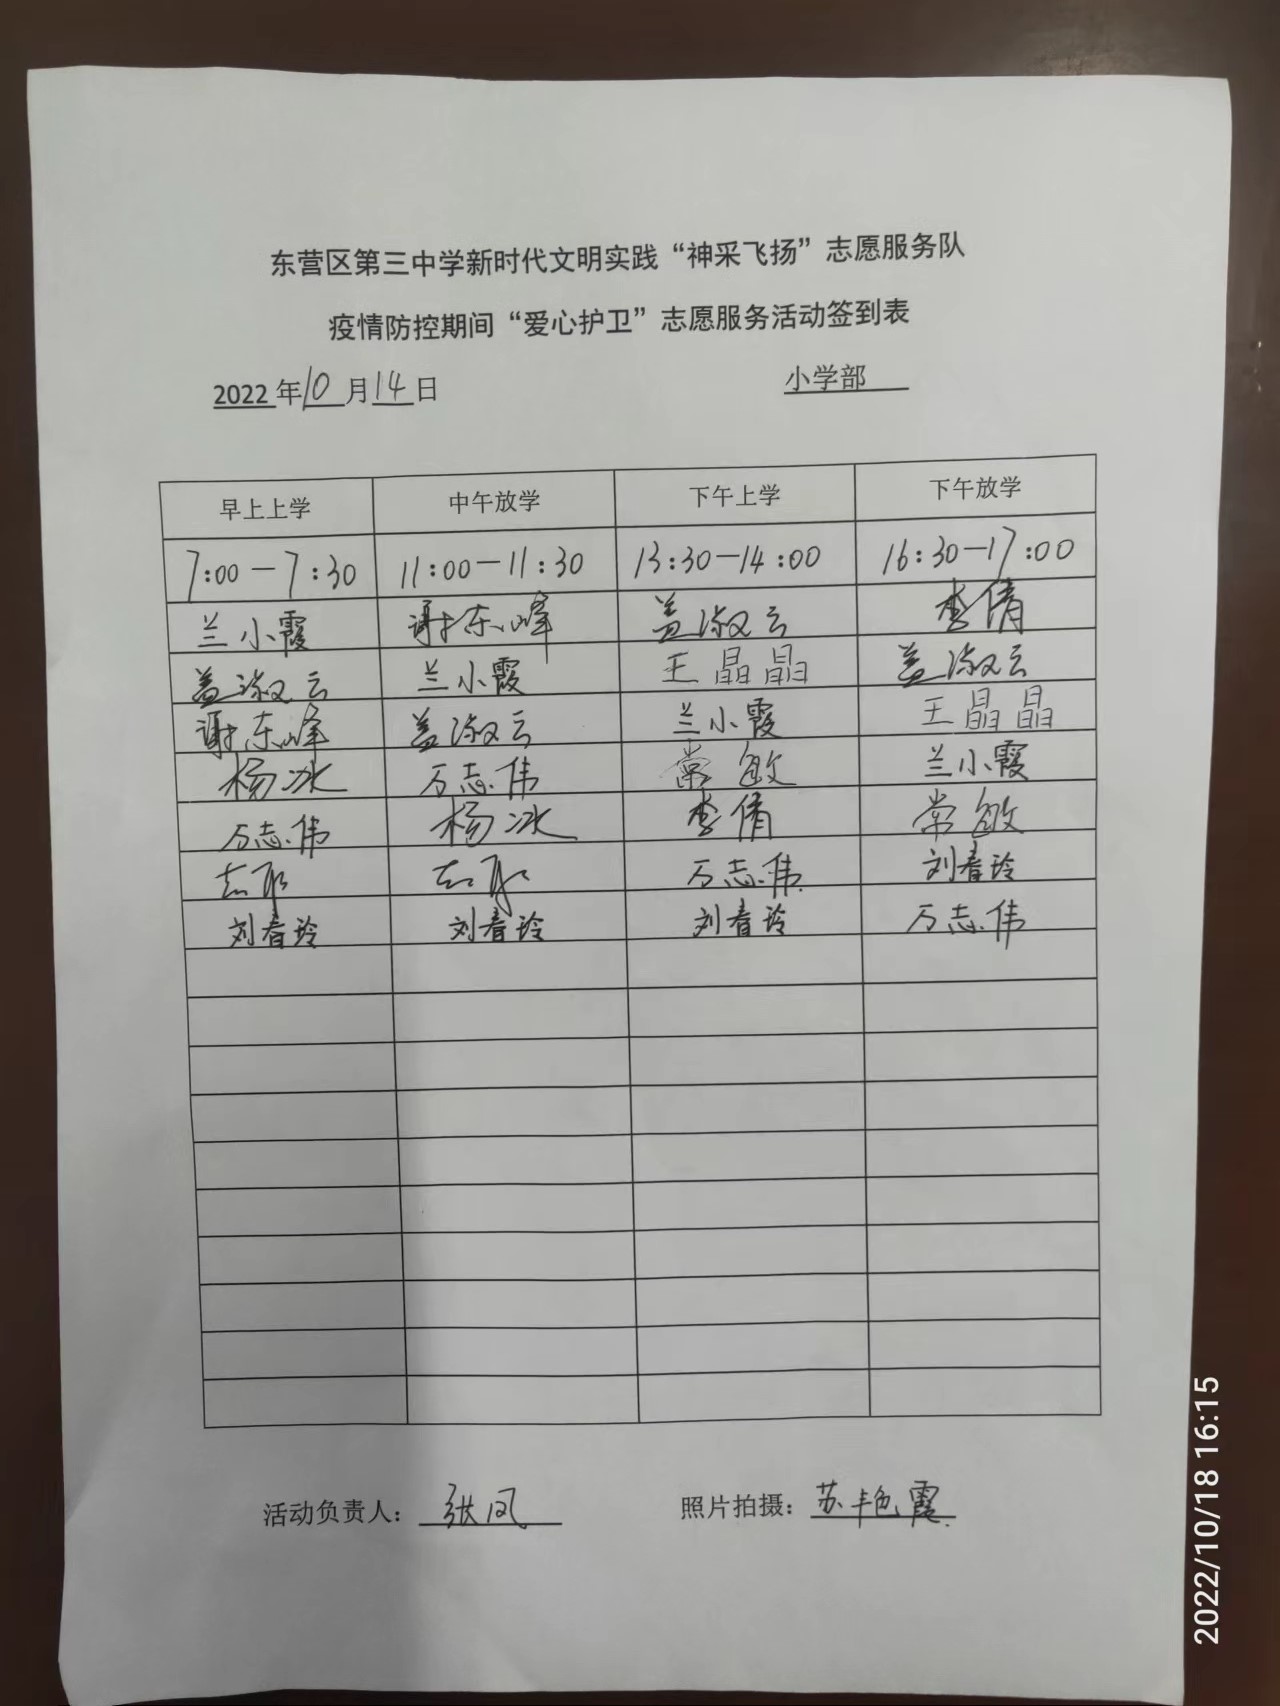 东营区第三中学新时代文明实践“神采飞扬”志愿服务队
疫情防控期间“爱心护卫”志愿服务活动签到表
2022年10月14日 小学部
早上上学 中午放学 下午上学 下午放学
7:00-7:30 11:00-11:30 13:30-14:00 16:30-17:00
兰小霞 谢东峰 盖淑云 李倩
盖淑云 兰小霞 王晶晶 盖淑云
谢东峰 盖淑云 兰小霞 王晶晶
杨冰 万志伟 常敏 兰小霞
万志伟 杨冰 李倩 常敏
万志伟 刘春玲
刘春玲 刘春玲 刘春玲 万志伟
活动负责人：张凤 照片拍摄：苏艳霞
2022/10/18 16:15